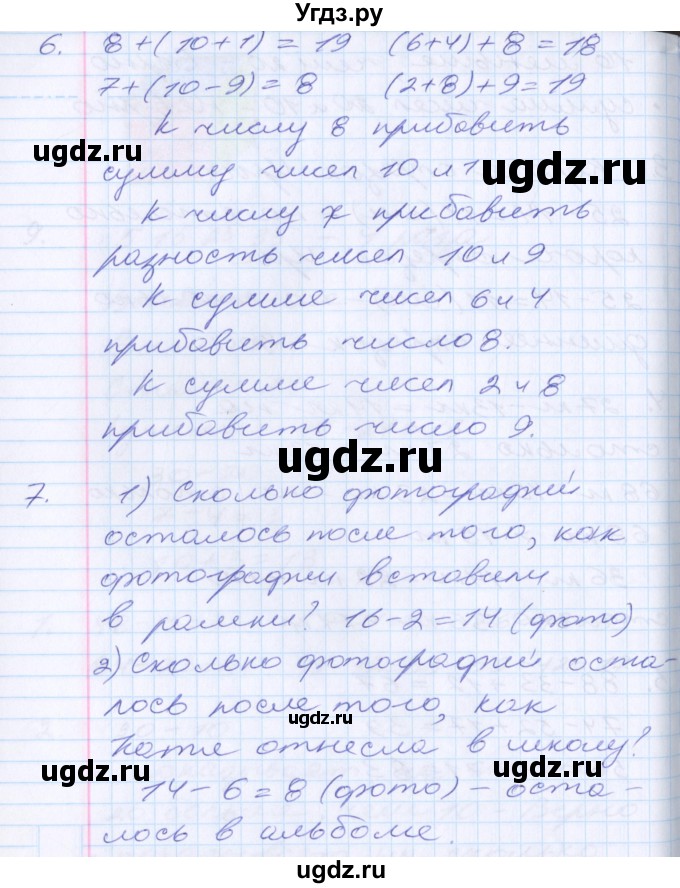 Угдз.ру
6. 8+(10+1) = 19 (6+4)+8=18
7+(10-9)=8 (2+8)+9=19
К числу 8 прибавить
ugdz.ru
сумму чисел 10 и 1
ugdz.ru
К числу 7 прибавить
разность чисел 10 и 9
К сумме чисел 6 и 4
прибавить число 8.
К сумме чисел 2 и 8
прибавить число 9.
ugdz.ru
7. 1) Сколько фотографий
осталось после того, как
фотографии вставили
в рамки? 16-2=14 (фото)
2) Сколько фотографий оста-
лось после того, как
ugdz.ru
Катя отнесла в школу?
ugdz.ru
ugdz.ru
14-6=8 (фото) - оста-
лось в альбоме.
ugdz.ru